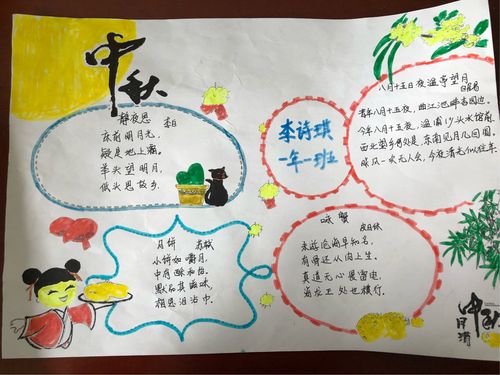 中秋
静夜思
李白
床前明月光,
疑是地上霜,
举头望明月,
低头思故乡。
李诗琪
一年一班
八月十五日夜湓亭望月
白居易
昔年八月十五夜,曲江池畔杏园边。
今年八月十五夜,湓浦沙头水馆前。
西北望乡何处是,东南见月几回圆。
昨风一次无人会,今夜清光似往年。
月饼
苏轼
小饼如嚼月,
中有酥和饴。
默品其滋味,
相思泪沾巾。
咏蟹
皮日休
未游沧海早知名,
有骨还从肉上生。
真道无心畏雷电,
海龙王处也横行。
中秋
月清